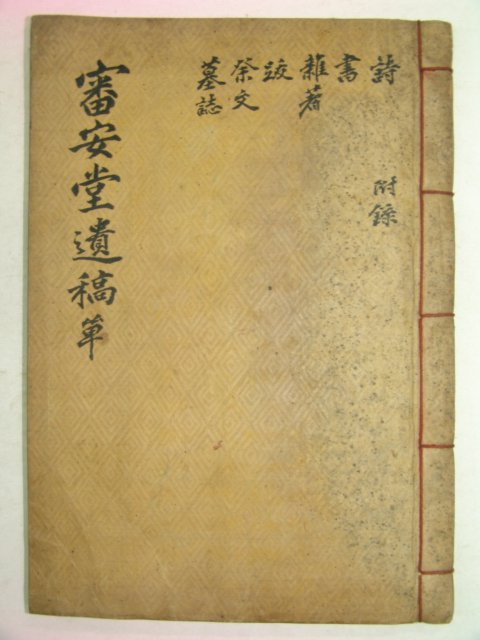 審安堂遺稿 單
詩
書
雜著
跋
祭文
墓誌
附錄